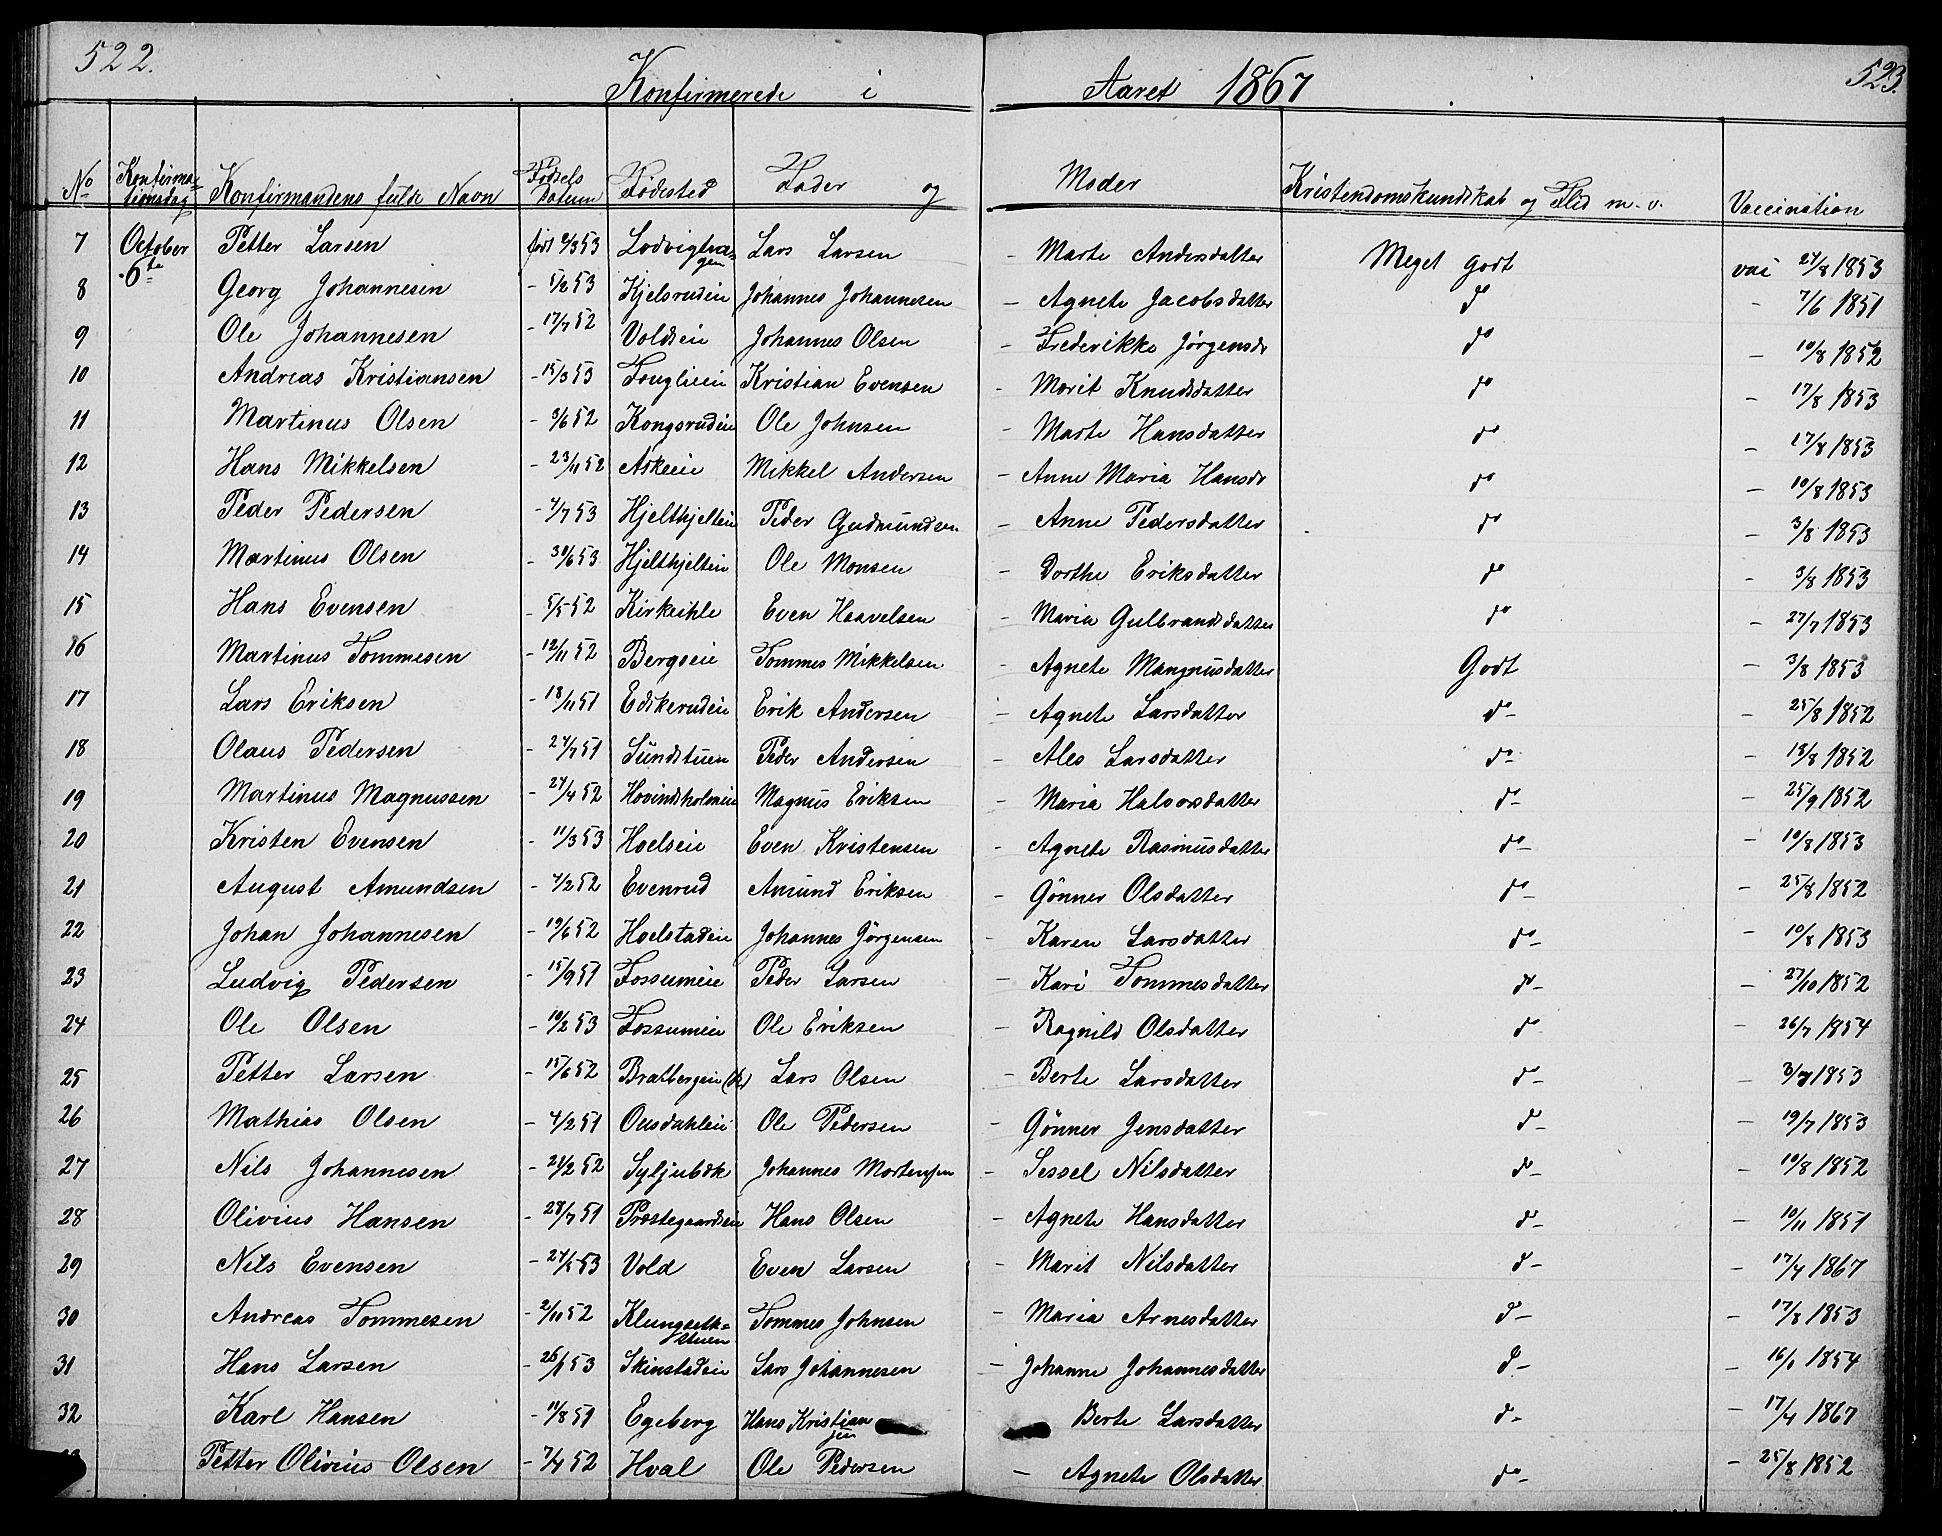 522.
Konfirmerede i Aaret 1867
523.
No Konfirmationsdag Konfirmandens fulde Navn Fødsels Datum Fødested Fader og Moder Kristendomskundskab og Flid m. v. Vaccination
7 October 6te Petter Larsen født 6/3 53 Lars Larsen - Marte Andersdatter Meget godt vac 24/8 1853
8 Georg Johannesen - 5/2 53 Kjelsrudeie Johannes Johannesen - Agnete Jacobsdatter do - 7/6 1851
9 Ole Johannesen - 17/7 52 Voldeie Johannes Olsen - Frederikke Jørgensdr do - 10/8 1852
10 Andreas Kristiansen - 15/3 53 Kristian Evensen - Marit Knudsdatter do - 17/8 1853
11 Martinus Olsen - 3/6 52 Kongsrudeie Ole Johnsen - Marte Hansdatter do - 17/8 1853
12 Hans Mikkelsen - 23/11 52 Askeeie Mikkel Andersen - Anne Maria Hansdr do - 10/8 1853
13 Peder Pedersen - 4/7 53 Hjelthjelteie Peder Gudmundsen - Anne Pedersdatter do - 3/8 1853
14 Martinus Olsen - 30/6 53 Hjelthjelteie Ole Monsen - Dorthe Eriksdatter do - 3/8 1853
15 Hans Evensen - 5/5 52 Even Haavelsen - Maria Gulbrandsdatter do - 27/7 1853
16 Martinus Tommesen - 12/11 52 Bergseie Tommes Mikkelsen - Agnete Mangnusdatter Godt - 3/8 1853
17 Lars Eriksen - 18/11 51 Erik Andersen - Agnete Larsdatter do - 25/8 1852
18 Olaus Pedersen - 24/7 51 Sundstuen Peder Andersen - Ales Larsdatter do - 18/8 1852
19 Martinus Magnussen - 24/4 52 Hovindsholmeie Magnus Eriksen - Maria Halvorsdatter do - 25/9 1852
20 Kristen Evensen - 11/3 53 Hoelseie Even Kristensen - Agnete Rasmusdatter do - 10/8 1853
21 August Amundsen - 4/2 52 Evenrud Amund Eriksen - Gønner Olsdatter do - 25/8 1852
22 Johan Johannesen - 19/6 52 Hoelstadeie Johannes Jörgensen - Karen Larsdatter do - 10/8 1853
23 Ludvig Pedersen - 15/9 51 Fossumeie Peder Larsen - Kari Tommesdatter do - 27/10 1852
24 Ole Olsen - 10/2 53 Fossumeie Ole Eriksen - Ragnild Olsdatter do - 26/7 1854
25 Petter Larsen - 15/6 52 Bratbergeie Lars Olsen - Berte Larsdatter do - 1853
26 Mathias Olsen - 4/2 51 Ousdahleie Ole Pedersen - Gönner Jensdatter do - 19/7 1853
27 Nils Johannesen - 21/2 52 Syljubæk Johannes Mortensen - Sessel Nilsdatter do - 10/8 1852
28 Olivius Hansen - 28/7 51 Præstegaardseie Hans Olsen - Agnete Hansdatter do - 10/11 1851
29 Nils Evensen - 24/5 53 Vold Even Larsen - Marit Nilsdatter do - 17/4 1867
30 Andreas Tommesen - 2/11 52 Tommes Johnsen - Maria Arnesdatter do - 17/8 1853
31 Hans Larsen - 26/1 53 Skinstadeie Lars Johannesen - Johanne Johannesdatter do - 16/1 1854
32 Karl Hansen - 11/8 51 Egeberg Hans Kristian - Berte Larsdatter do - 17/4 1867
Petter Olivius Olsen - 7/4 52 Hval Ole Pedersen - Agnete Olsdatter do - 25/8 1852